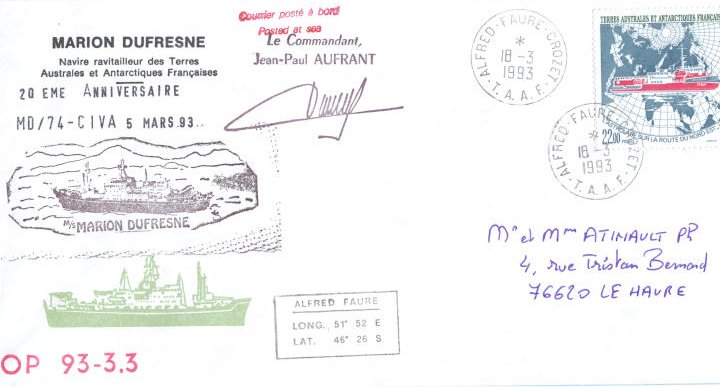 Courrier posté à bord
Posted at sea
MARION DUFRESNE
Navire ravitailleur des Terres
Australes et Antarctiques Françaises
20 EME ANNIVERSAIRE
MD/74-CIVA 5 MARS.93..
Le Commandant,
Jean-Paul AUFRANT
M/S MARION DUFRESNE
OP 93-3.3
ALFRED FAURE
LONG. 51° 52 E
LAT. 46° 26 S
ALFRED-FAURE-CROZET
*
18-3
1993
·T.A.A.F.·
TERRES AUSTRALES ET ANTARCTIQUES FRANÇAISES
SUR LA ROUTE DU NORD EST
22,00
ALFRED-FAURE-CROZET
*
18-3
1993
·T.A.A.F.·
Mr et Mme ATINAULT PR
4, rue Tristan Bernard
76620 LE HAVRE